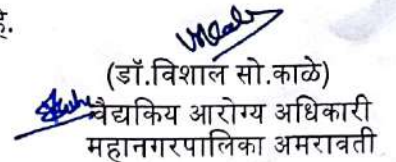 हे.
(डॉ.विशाल सो.काळे)
वैद्यकिय आरोग्य अधिकारी
महानगरपालिका अमरावती